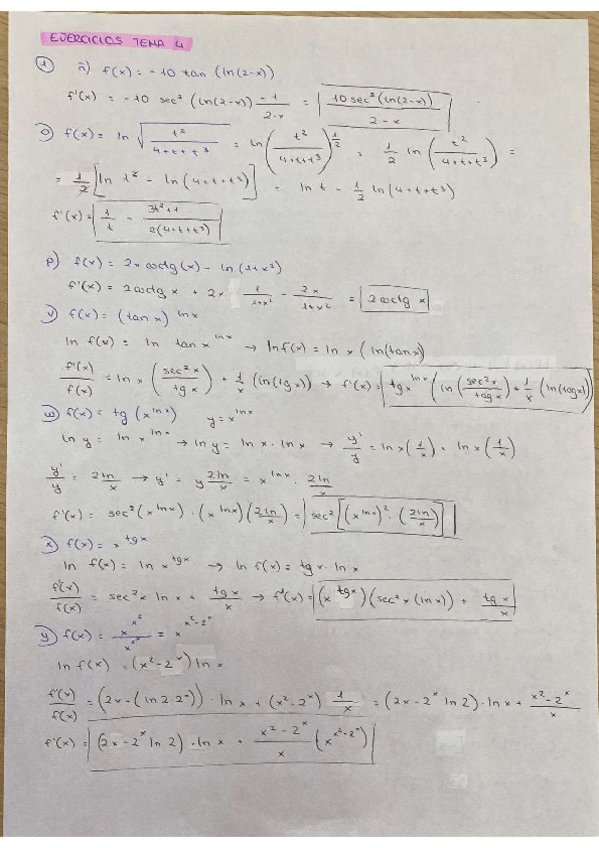 EJERCICIOS TEMA 4
① ñ) f(x) = -10 tan (ln(2-x))
f'(x) = -10 sec² (ln(2-x)) · -1/(2-x) = 10 sec² (ln(2-x)) / (2-x)
o) f(x) = ln √(t²/(4+t+t³)) = ln (t²/(4+t+t³))^(1/2) = 1/2 ln (t²/(4+t+t³)) =
= 1/2 [ln t² - ln (4+t+t³)] = ln t - 1/2 ln (4+t+t³)
f'(x) = 1/t - (3t²+1)/(2(4+t+t³))
p) f(x) = 2x arctg(x) - ln (1+x²)
f'(x) = 2 arctg x + 2x · 1/(1+x²) - 2x/(1+x²) = 2 arctg x
v) f(x) = (tan x)^(ln x)
ln f(x) = ln tan x^(ln x) → ln f(x) = ln x (ln(tan x)
f'(x)/f(x) = ln x (sec² x / tg x) + 1/x (ln(tg x)) → f'(x) = tg x^(ln x) (ln (sec² x / tag x) + 1/x (ln(tag x))
w) f(x) = tg (x^(ln x)) y = x^(ln x)
ln y = ln x^(ln x) → ln y = ln x · ln x → y'/y = ln x (1/x) + ln x (1/x)
y'/y = 2 ln/x → y' = y 2 ln/x = x^(ln x) · 2 ln/x
f'(x) = sec² (x^(ln x)) · (x^(ln x)) (2 ln/x) = sec² [(x^(ln x))² · (2 ln/x)]
x) f(x) = x^(tg x)
ln f(x) = ln x^(tg x) → ln f(x) = tg x · ln x
f'(x)/f(x) = sec² x ln x + tg x/x → f'(x) = (x^(tg x)) (sec² x (ln x)) + tg x/x
y) f(x) = x^(x²)/x^(2^x) = x^(x²-2^x)
ln f(x) = (x²-2^x) ln x
f'(x)/f(x) = (2x - (ln 2 · 2^x)) · ln x + (x²-2^x) 1/x = (2x - 2^x ln 2) · ln x + (x²-2^x)/x
f'(x) = (2x - 2^x ln 2) · ln x + (x²-2^x)/x (x^(x²-2^x))